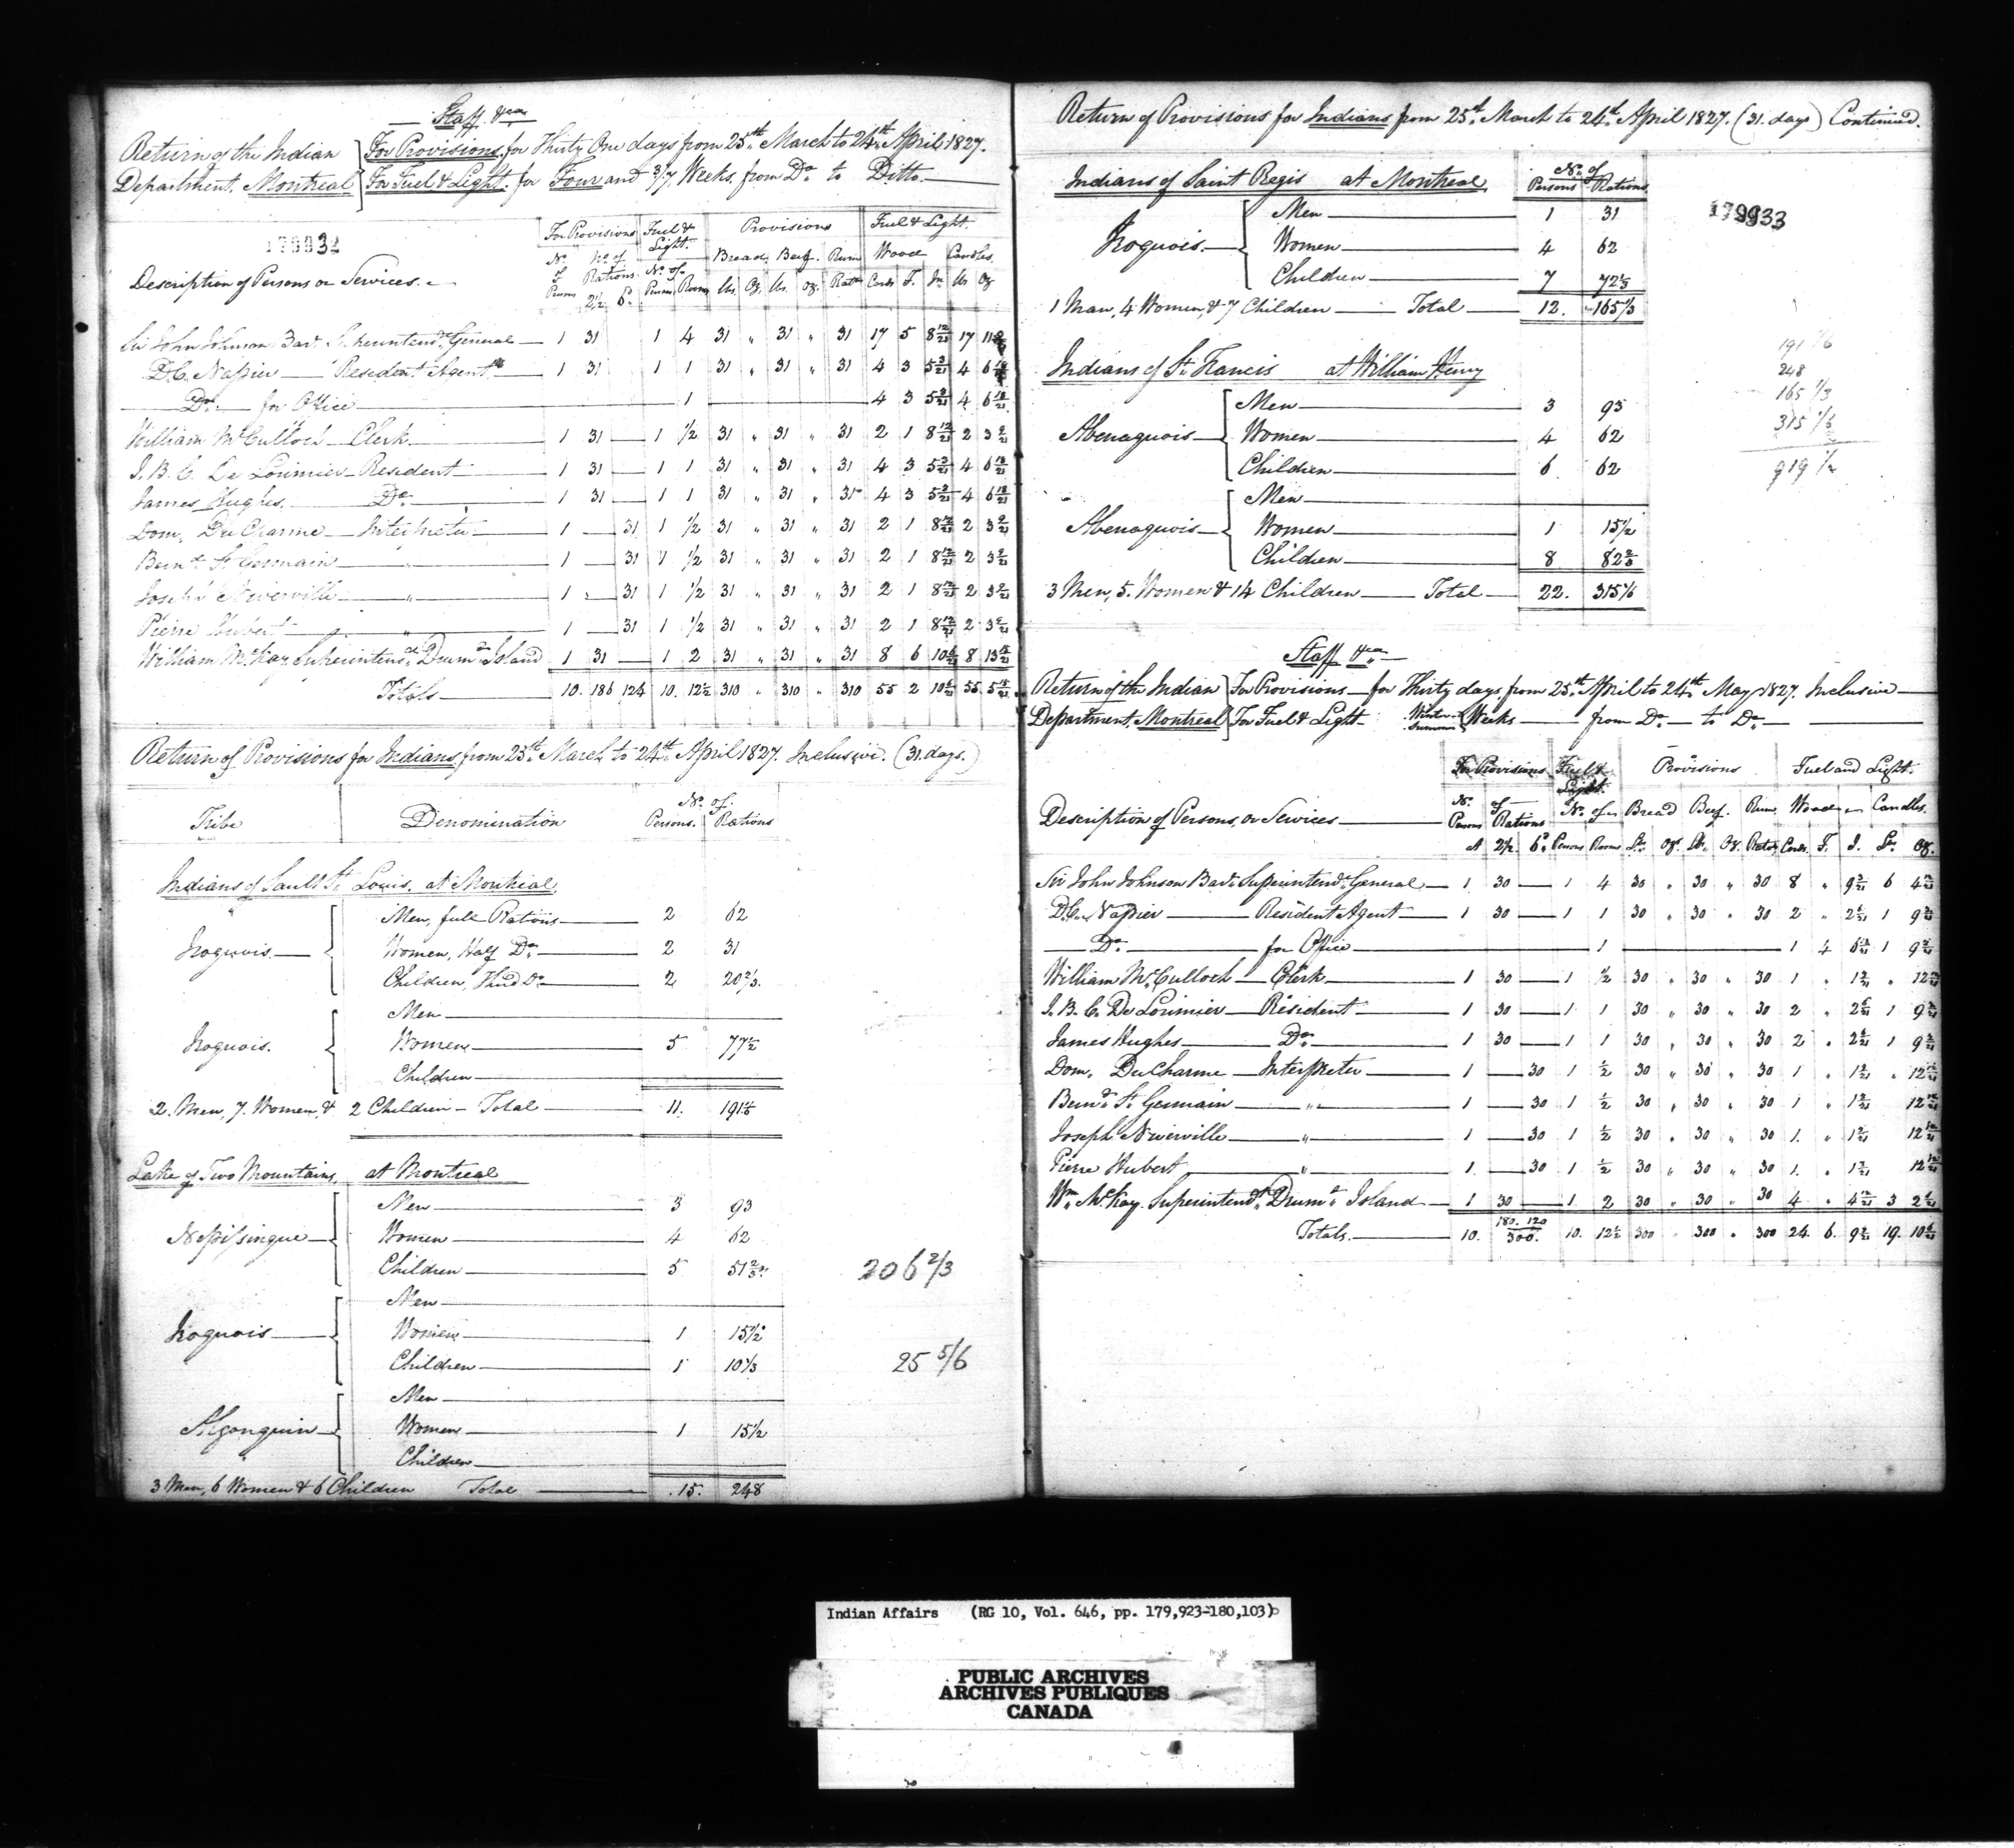 Staff &ca
Return of the Indian } For Provisions, for Thirty One days from 25th March to 24th April 1827.
Department, Montreal } For Fuel & Light, for Four and 3/7 Weeks, from Do to Ditto
179932
For Provisions Fuel & Light. Provisions Fuel & Light.
No of Persons No of Rations No of Bread Beef Rum Wood Candles
Description of Persons or Services. 2½ 6d Persons Rooms lbs. Oz. lbs. oz. Ratns Cords F. In lbs Oz
Sir John Johnson Bart. Superintendt General 1 31 1 4 31 " 31 " 31 17 5 8 12/21 17 11
D.C. Napier Resident Agent 1 31 1 1 31 " 31 " 31 4 3 5 3/21 4 6 18/21
Do for Office 1 4 3 5 3/21 4 6 18/21
William McCulloch Clerk 1 31 1 ½ 31 " 31 " 31 2 1 8 12/21 2 3 9/21
J. B. C. De Lorimier Resident 1 31 1 1 31 " 31 " 31 4 3 5 3/21 4 6 18/21
James Hughes Do 1 31 1 1 31 " 31 " 31 4 3 5 3/21 4 6 18/21
Dom. Du Charme Interpreter 1 31 1 ½ 31 " 31 " 31 2 1 8 12/21 2 3 9/21
Bernd St Germain " 1 31 1 ½ 31 " 31 " 31 2 1 8 12/21 2 3 9/21
Joseph Niverville " 1 31 1 ½ 31 " 31 " 31 2 1 8 12/21 2 3 9/21
Pierre Hubert " 1 31 1 ½ 31 " 31 " 31 2 1 8 12/21 2 3 9/21
William McKay Superintendt Drumd Island 1 31 1 2 31 " 31 " 31 8 6 10 6/21 8 13 15/21
Totals 10. 186 124 10. 12½ 310 " 310 " 310 55 2 10 55 5
Return of Provisions for Indians from 25th March to 24th April 1827. Inclusive. (31. days.)
Tribe Denomination No of Persons. Rations
Indians of Sault St Louis. at Montreal.
Iroquois. { Men, full Rations 2 62
Women, Half Do 2 31
Children, Third Do 2 20 2/3.
Iroquois. { Men
Women 5 77½
Children
2. Men, 7. Women, & 2 Children - Total 11. 191 1/6
Lake of Two Mountains, at Montreal
Nepissingue { Men 3 93
Women 4 62
Children 5 51 2/3. 206 2/3
Iroquois { Men
Women 1 15½
Children 1 10 1/3 25 5/6
Algonquin { Men
Women 1 15½
Children
3 Men, 6 Women & 6 Children Total 15. 248
Return of Provisions for Indians from 25th March to 24th April 1827. (31. days) Continued.
Indians of Saint Regis at Montreal. No of Persons Rations
179933
Iroquois. { Men 1 31
Women 4 62
Children 7 72 1/3
1 Man, 4 Women, & 7 Children Total 12. 165 1/3
191 1/6
Indians of St Francis at William Henry
248
165 1/3
315 1/6
919 ½
Abenaquois { Men 3 93
Women 4 62
Children 6 62
Abenaquois { Men
Women 1 15½
Children 8 82 2/3
3 Men, 5. Women & 14 Children Total 22. 315 1/6
Staff &ca
Return of the Indian } For Provisions for Thirty days, from 25th April to 24th May 1827. Inclusive
Department, Montreal } For Fuel & Light Winter Summer Weeks from Do to Do
For Provisions Fuel & Light. Provisions Fuel and Light.
Description of Persons, or Services No of Persons Rations No of Bread Beef. Rum Wood Candles.
At 2½ 6d Persons Rooms Lb. Oz. Lb. Oz. Ratns Cords. F. I. Lb. Oz.
Sir John Johnson Bart. Superintendt General 1 30 1 4 30 " 30 " 30 8 " 9 3/21 6 4
D.C. Napier Resident Agent 1 30 1 1 30 " 30 " 30 2 " 2 6/21 1 9
Do for Office 1 1 4 6 1 9
William McCulloch Clerk 1 30 1 ½ 30 " 30 " 30 1 " 1 3/21 " 12
J. B. C. De Lorimier Resident 1 30 1 1 30 " 30 " 30 2 " 2 6/21 1 9
James Hughes Do 1 30 1 1 30 " 30 " 30 2 " 2 6/21 1 9
Dom. Du Charme Interpreter 1 30 1 ½ 30 " 30 " 30 1 " 1 3/21 " 12
Bernd St Germain " 1 30 1 ½ 30 " 30 " 30 1 " 1 3/21 12
Joseph Niverville " 1 30 1 ½ 30 " 30 " 30 1. " 1 3/21 12
Pierre Hubert " 1. 30 1 ½ 30 " 30 " 30 1. " 1 3/21 12
Wm McKay. Superintendt Drumd Island 1 30 1. 2 30 " 30 " 30 4 " 4 12/21 3 2
Totals. 10. 180. 120 300. 10. 12½ 300 " 300 " 300 24. 6. 9 19. 10
Indian Affairs (RG 10, Vol. 646, pp. 179,923-180,103)
PUBLIC ARCHIVES
ARCHIVES PUBLIQUES
CANADA